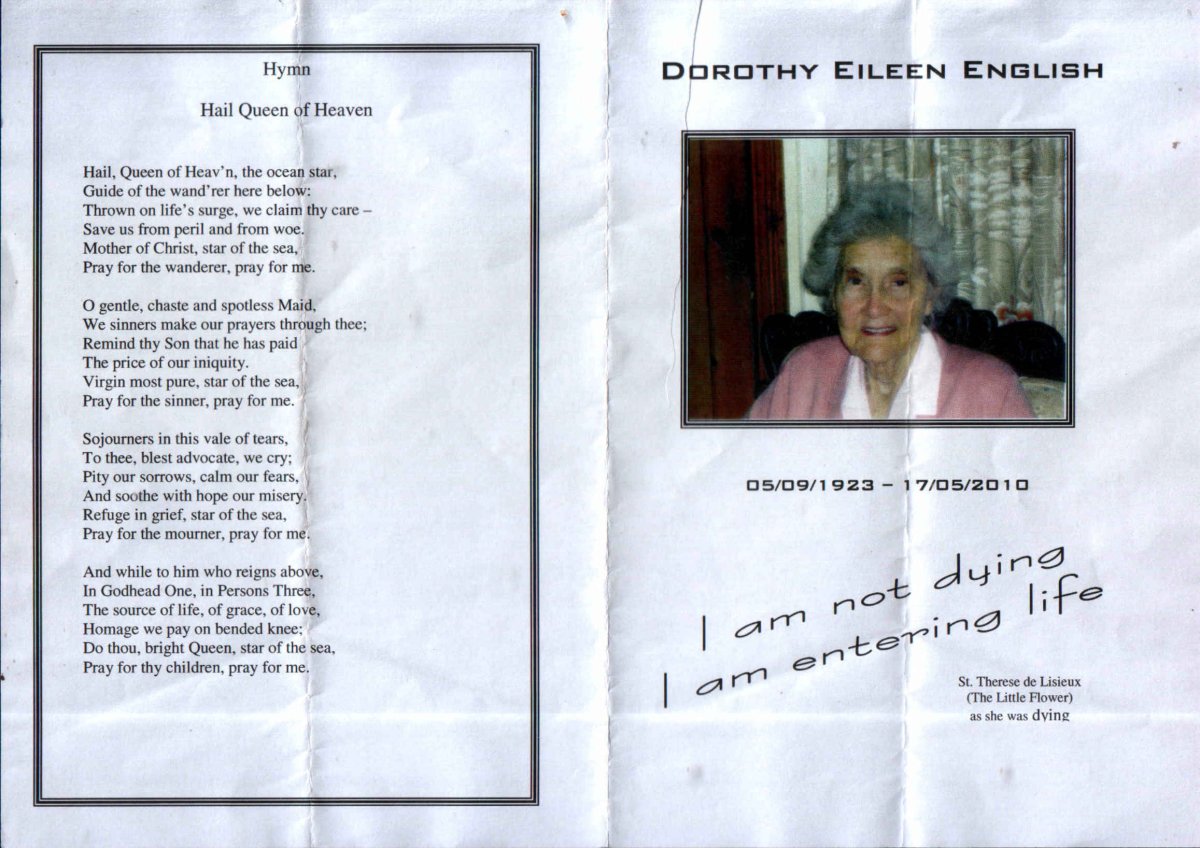 Hymn
Hail Queen of Heaven
Hail, Queen of Heav'n, the ocean star,
Guide of the wand'rer here below:
Thrown on life's surge, we claim thy care –
Save us from peril and from woe.
Mother of Christ, star of the sea,
Pray for the wanderer, pray for me.
O gentle, chaste and spotless Maid,
We sinners make our prayers through thee;
Remind thy Son that he has paid
The price of our iniquity.
Virgin most pure, star of the sea,
Pray for the sinner, pray for me.
Sojourners in this vale of tears,
To thee, blest advocate, we cry;
Pity our sorrows, calm our fears,
And soothe with hope our misery.
Refuge in grief, star of the sea,
Pray for the mourner, pray for me.
And while to him who reigns above,
In Godhead One, in Persons Three,
The source of life, of grace, of love,
Homage we pay on bended knee;
Do thou, bright Queen, star of the sea,
Pray for thy children, pray for me.
DOROTHY EILEEN ENGLISH
05/09/1923 – 17/05/2010
I am not dying
I am entering life
St. Therese de Lisieux
(The Little Flower)
as she was dying